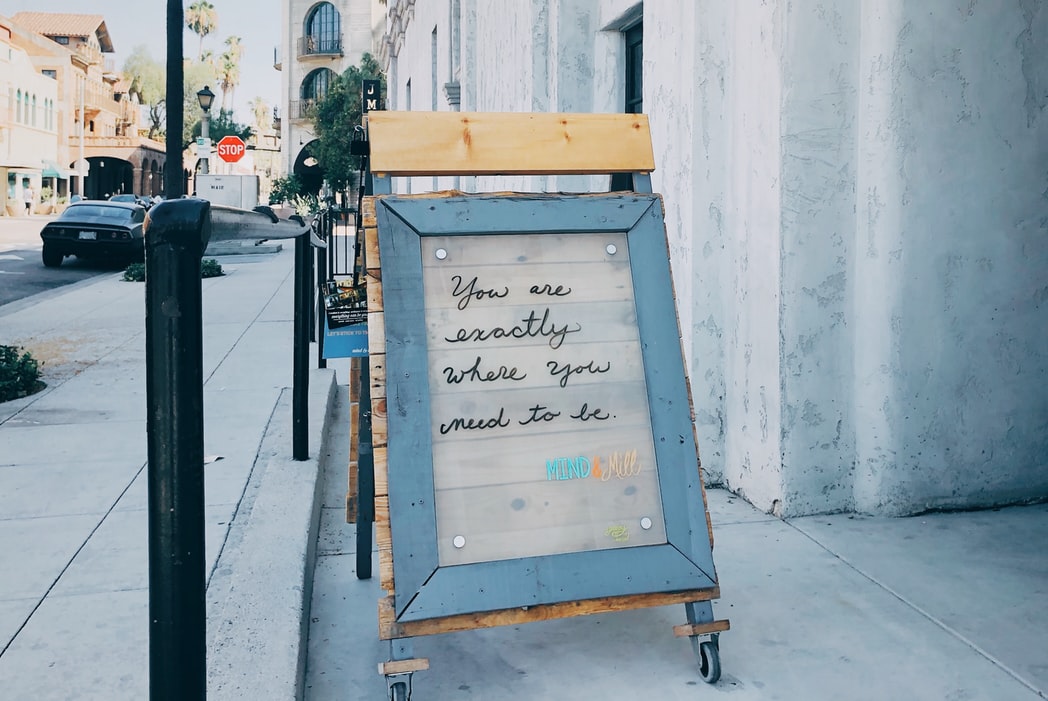 J
M
STOP
You are
exactly
where you
need to be.
MIND & Mill